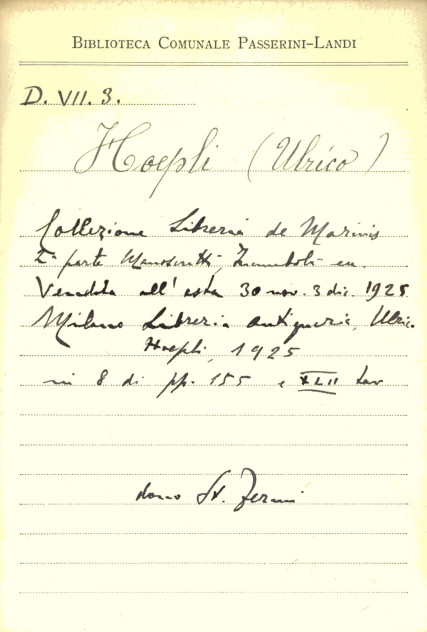 BIBLIOTECA COMUNALE PASSERINI-LANDI
D. VII. 3.
Hoepli (Ulrico)
Collezione Libreria de Marinis
IIa parte Manoscritti, Incunaboli ecc.
Vendita all'asta 30 nov. 3 dic. 1925
Milano Libreria antiquaria, Ulrico
Hoepli, 1925
in 8 di pp. 155 e XLII tav
dono